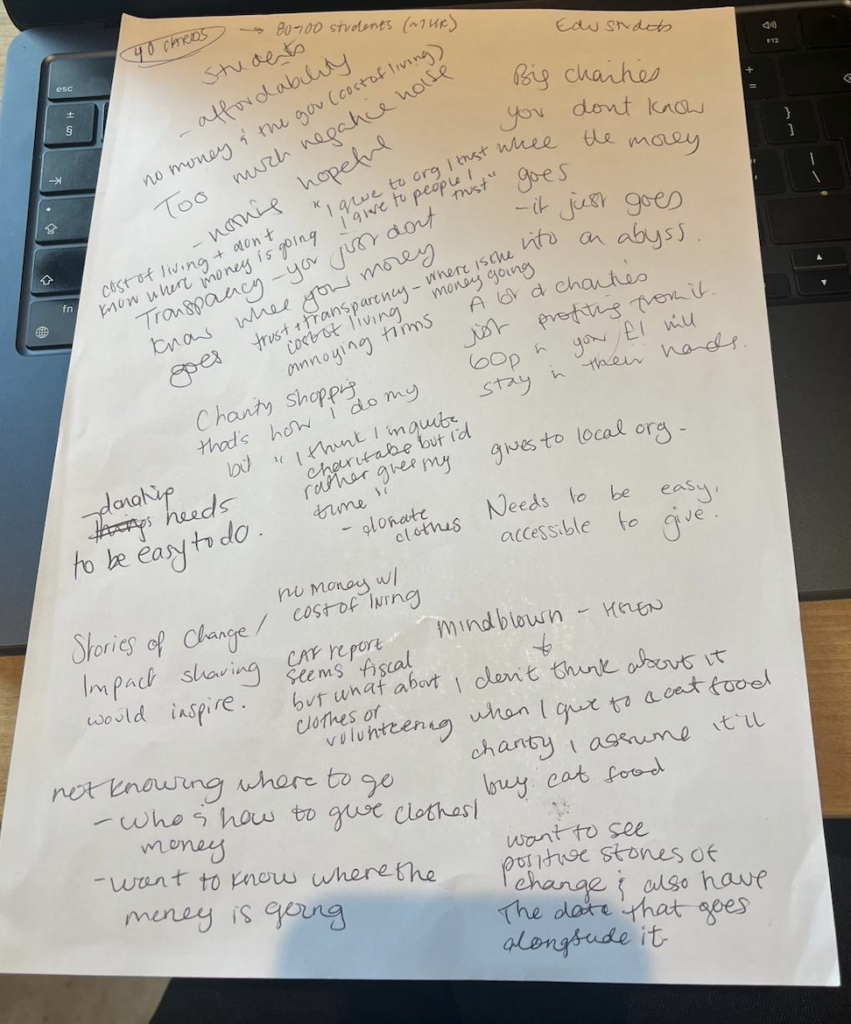 40 CARDS → 80-100 students (~1HR)
Students
- affordability
no money & the gov (cost of living)
Too much negative noise
- nothing hopeful
"I give to org I trust
I give to people I
trust"
cost of living + don't
know where money is going
Transparency - you just dont
know where your money
goes
trust + transparency - where is the
money going
cost of living
annoying firms
Charity shopping
that's how I do my
bit
"I think I'm quite
charitable but i'd
rather give my
time"
- donate
clothes
- donating
things needs
to be easy to do.
no money w/
cost of living
Stories of change/
Impact sharing
would inspire.
CAF report
seems fiscal
but what about
clothes or
volunteering
not knowing where to go
- who & how to give clothes/
money
- want to know where the
money is going
Edu Students
Big charities
you dont know
where the money
goes
- it just goes
into an abyss.
A lot of charities
just profiting from it.
60p in your £1 will
stay in their hands.
gives to local org -
Needs to be easy,
accessible to give.
mindblown - HELEN
I don't think about it
when I give to a cat food
charity I assume it'll
buy cat food
want to see
positive stories of
change & also have
the data that goes
alongside it.
esc
fn
F12